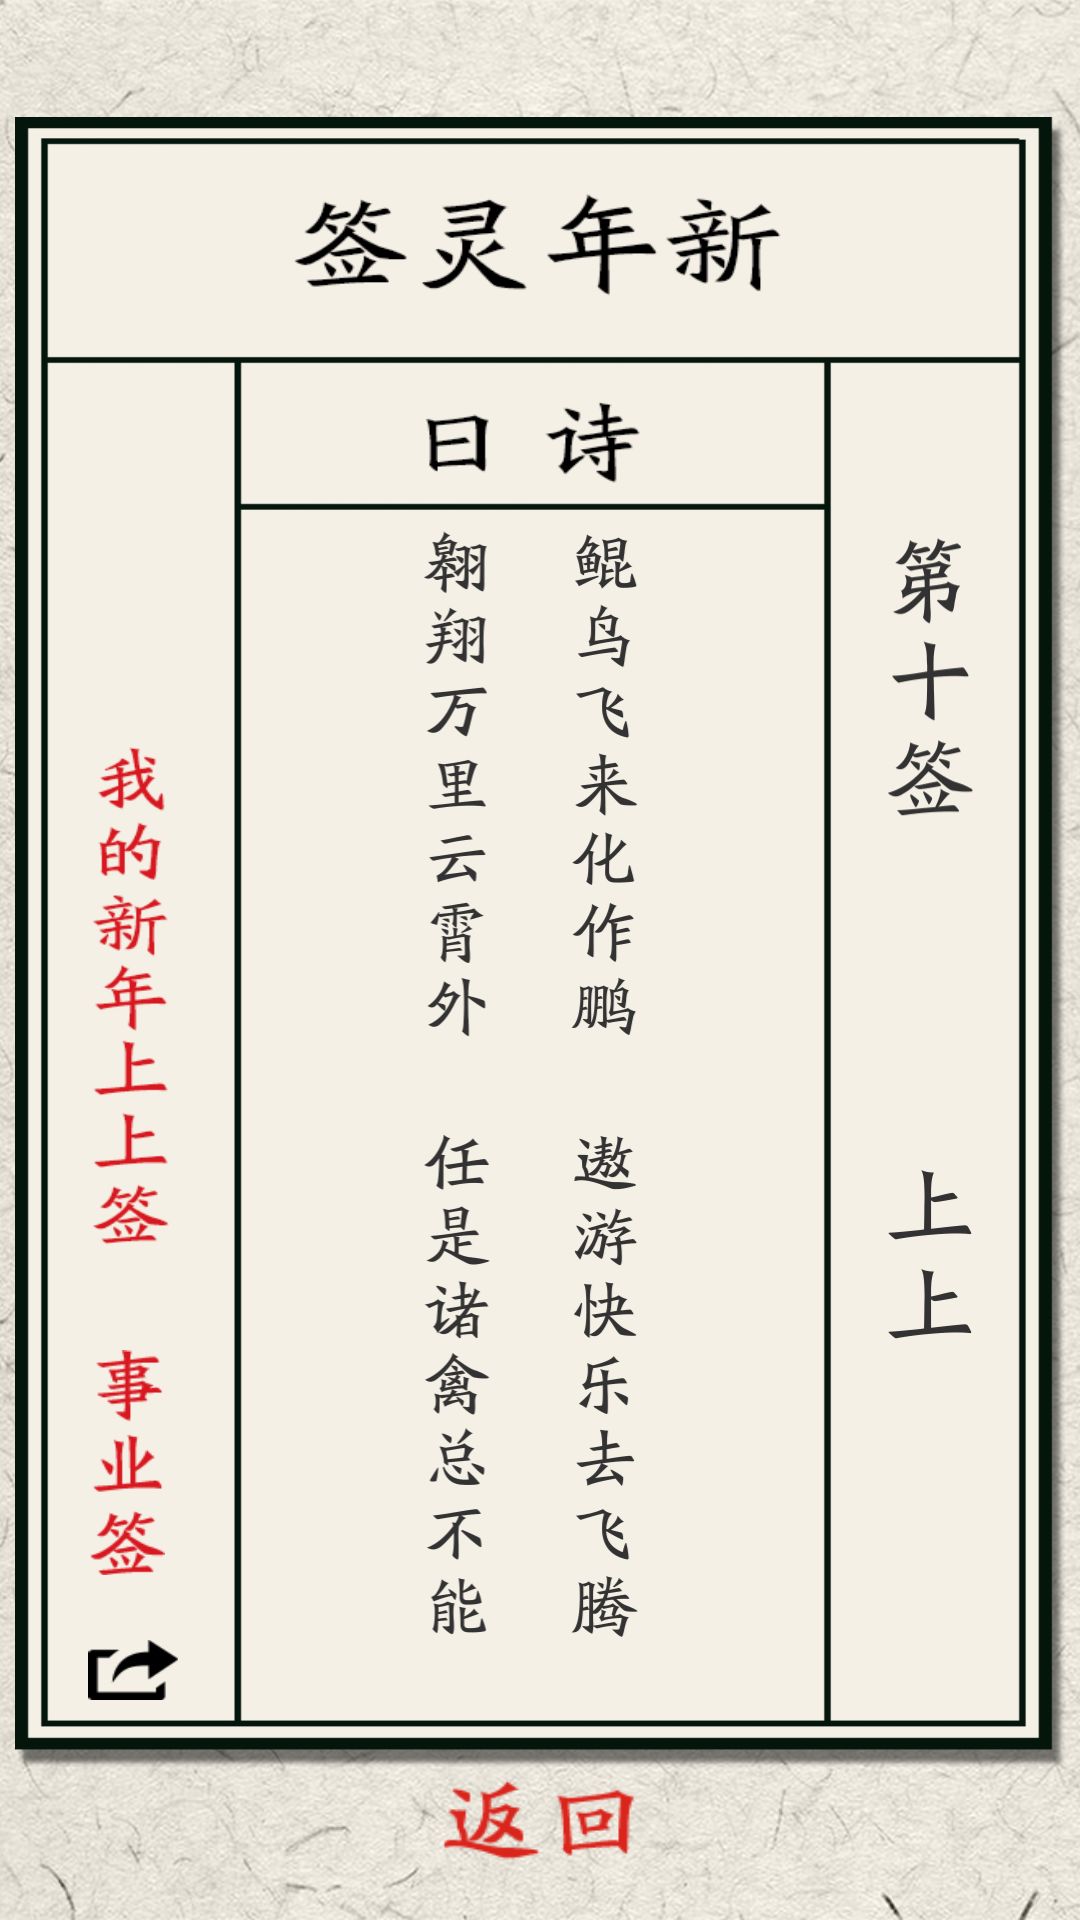 新年灵签
第十签
上上
诗曰
鲲鸟飞来化作鹏
遨游快乐去飞腾
翱翔万里云霄外
任是诸禽总不能
我的新年上上签
事业签
返回